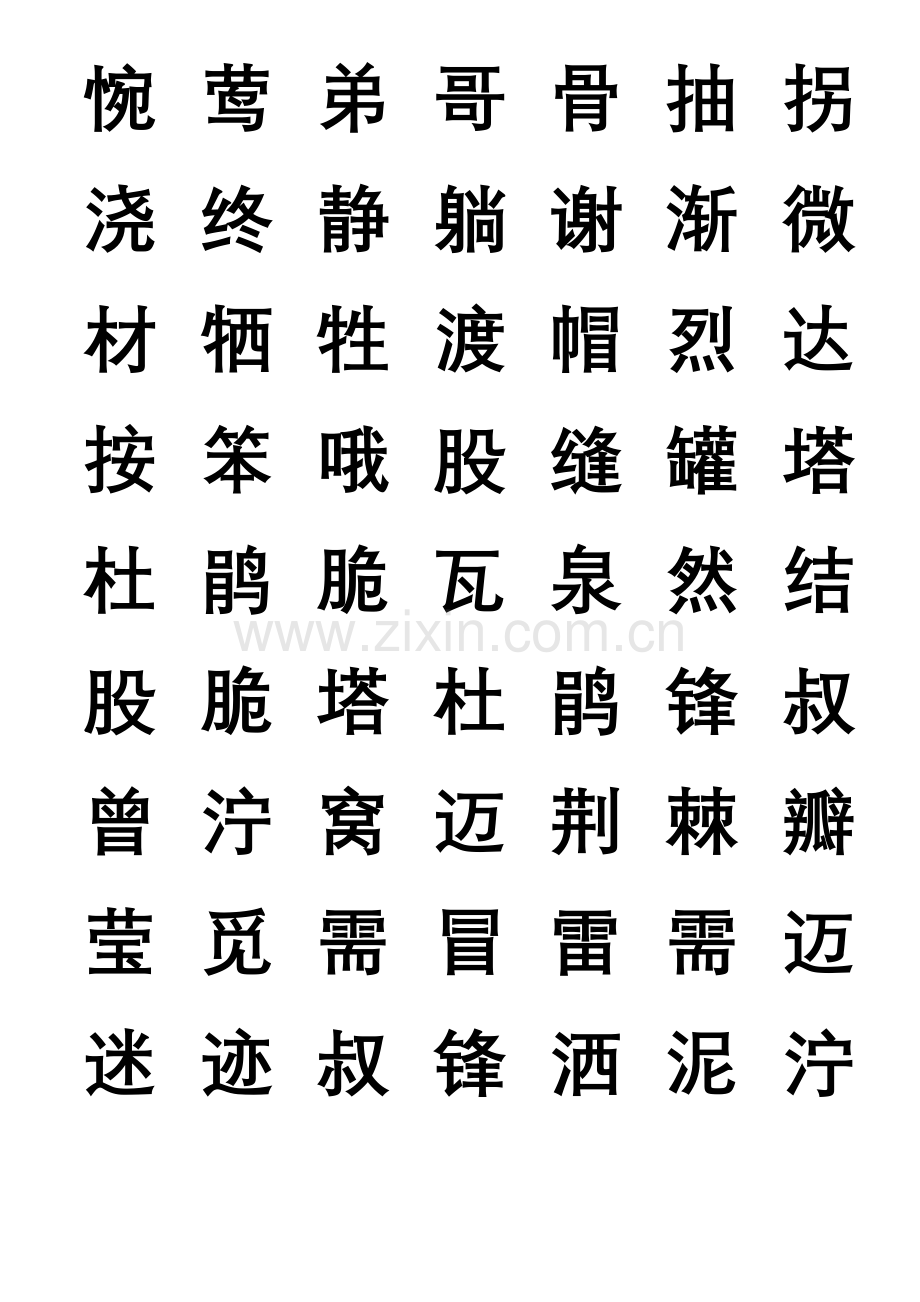 惋 莺 弟 哥 骨 抽 拐
浇 终 静 躺 谢 渐 微
材 牺 牲 渡 帽 烈 达
按 笨 哦 股 缝 罐 塔
杜 鹃 脆 瓦 泉 然 结
www.zixin.com.cn
股 脆 塔 杜 鹃 锋 叔
曾 泞 窝 迈 荆 棘 瓣
莹 觅 需 冒 雷 需 迈
迷 迹 叔 锋 洒 泥 泞